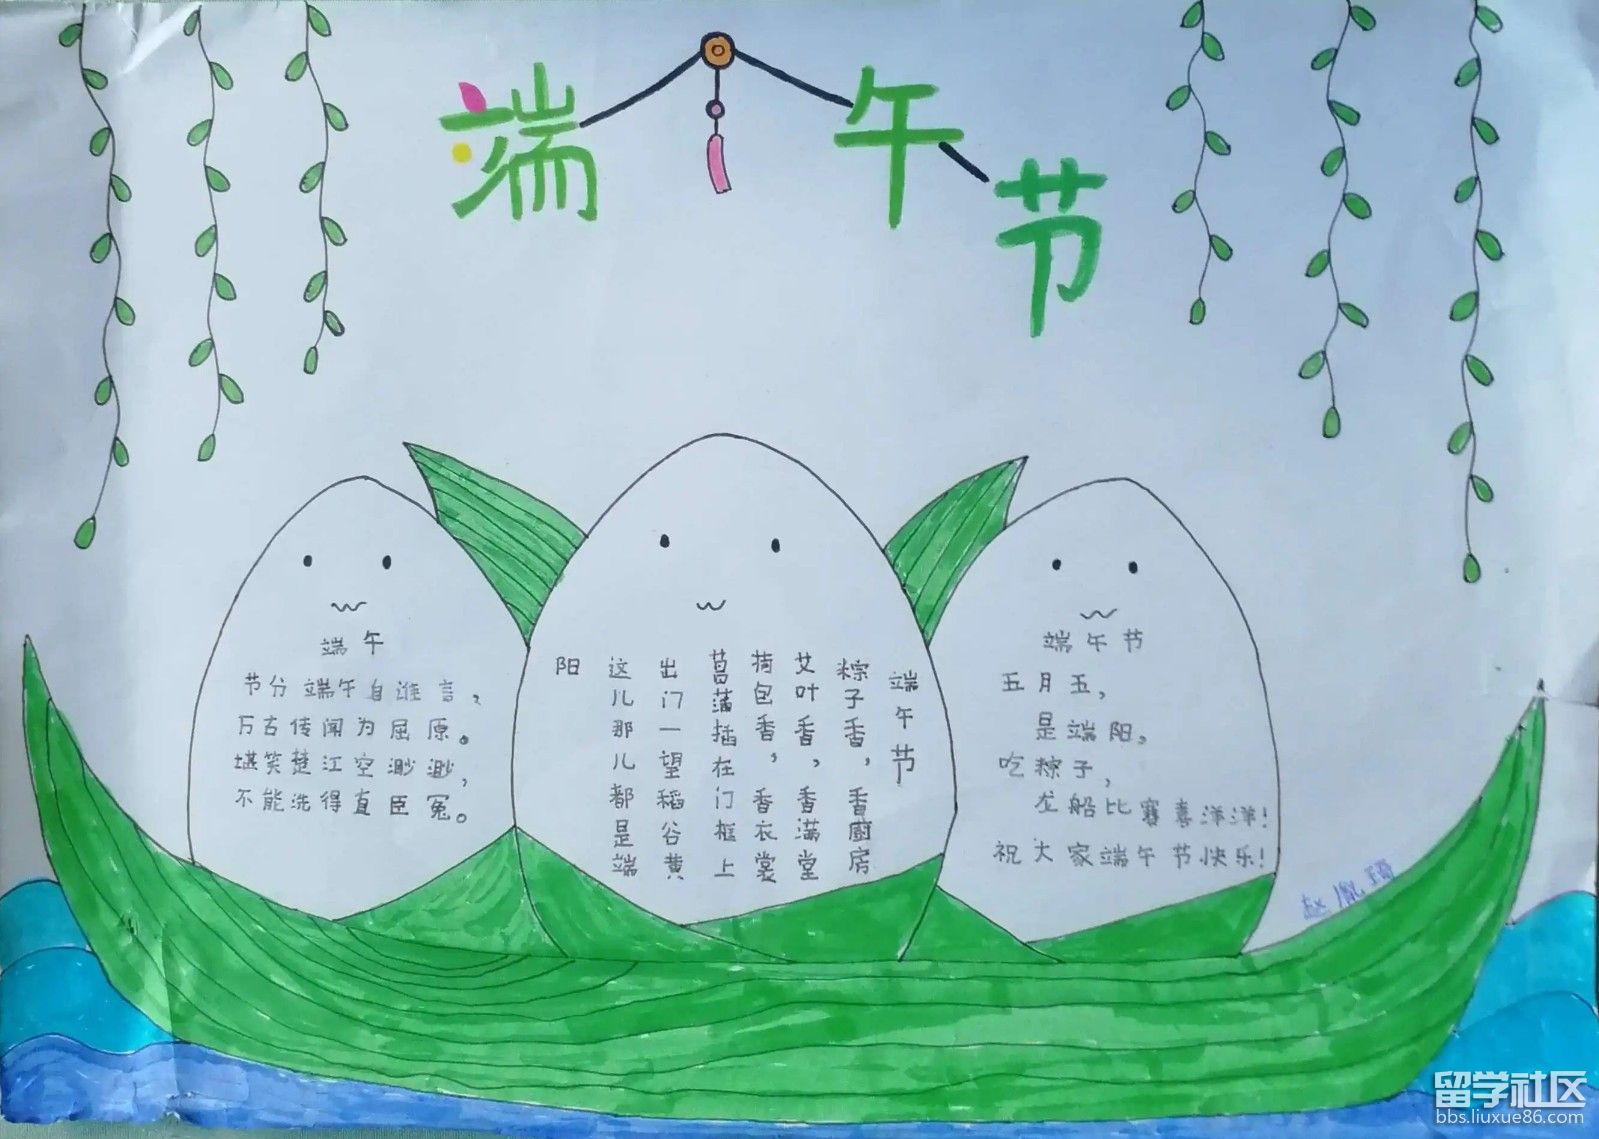 端午节
端午
节分端午自谁言,
万古传闻为屈原。
堪笑楚江空渺渺,
不能洗得直臣冤。
端午节
粽子香,香廚房
艾叶香,香满堂
菖蒲插在门框上
出门一望稻谷黄
这儿那儿都是端
阳
端午节
五月五,
是端阳。
吃粽子,
龙船比赛喜洋洋!
祝大家端午节快乐!
留学社区
bbs.liuxue86.com